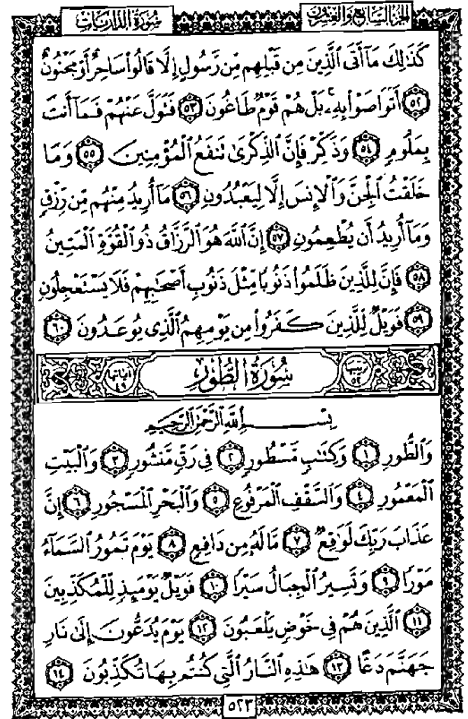 الجزء السابع والعشرون
سورة الذاريات
كَذَٰلِكَ مَآ أَتَى ٱلَّذِينَ مِن قَبۡلِهِم مِّن رَّسُولٍ إِلَّا قَالُواْ سَاحِرٌ أَوۡ مَجۡنُونٌ
٥٢ أَتَوَاصَوۡاْ بِهِۦۚ بَلۡ هُمۡ قَوۡمٌ طَاغُونَ ٥٣ فَتَوَلَّ عَنۡهُمۡ فَمَآ أَنتَ
بِمَلُومٍ ٥٤ وَذَكِّرۡ فَإِنَّ ٱلذِّكۡرَىٰ تَنفَعُ ٱلۡمُؤۡمِنِينَ ٥٥ وَمَا
خَلَقۡتُ ٱلۡجِنَّ وَٱلۡإِنسَ إِلَّا لِيَعۡبُدُونِ ٥٦ مَآ أُرِيدُ مِنۡهُم مِّن رِّزۡقٍ
وَمَآ أُرِيدُ أَن يُطۡعِمُونِ ٥٧ إِنَّ ٱللَّهَ هُوَ ٱلرَّزَّاقُ ذُو ٱلۡقُوَّةِ ٱلۡمَتِينُ
٥٨ فَإِنَّ لِلَّذِينَ ظَلَمُواْ ذَنُوبًا مِّثۡلَ ذَنُوبِ أَصۡحَٰبِهِمۡ فَلَا يَسۡتَعۡجِلُونِ
٥٩ فَوَيۡلٌ لِّلَّذِينَ كَفَرُواْ مِن يَوۡمِهِمُ ٱلَّذِي يُوعَدُونَ ٦٠
ترتيبها ٥٢
سُورَةُ الطُّورِ
آياتها ٤٩
بِسۡمِ ٱللَّهِ ٱلرَّحۡمَٰنِ ٱلرَّحِيمِ
وَٱلطُّورِ ١ وَكِتَٰبٍ مَّسۡطُورٍ ٢ فِي رَقٍّ مَّنشُورٍ ٣ وَٱلۡبَيۡتِ
ٱلۡمَعۡمُورِ ٤ وَٱلسَّقۡفِ ٱلۡمَرۡفُوعِ ٥ وَٱلۡبَحۡرِ ٱلۡمَسۡجُورِ ٦ إِنَّ
عَذَابَ رَبِّكَ لَوَٰقِعٌ ٧ مَّا لَهُۥ مِن دَافِعٍ ٨ يَوۡمَ تَمُورُ ٱلسَّمَآءُ
مَوۡرًا ٩ وَتَسِيرُ ٱلۡجِبَالُ سَيۡرًا ١٠ فَوَيۡلٌ يَوۡمَئِذٍ لِّلۡمُكَذِّبِينَ
١١ ٱلَّذِينَ هُمۡ فِي خَوۡضٍ يَلۡعَبُونَ ١٢ يَوۡمَ يُدَعُّونَ إِلَىٰ نَارِ
جَهَنَّمَ دَعًّا ١٣ هَٰذِهِ ٱلنَّارُ ٱلَّتِي كُنتُم بِهَا تُكَذِّبُونَ ١٤
٥٢٣